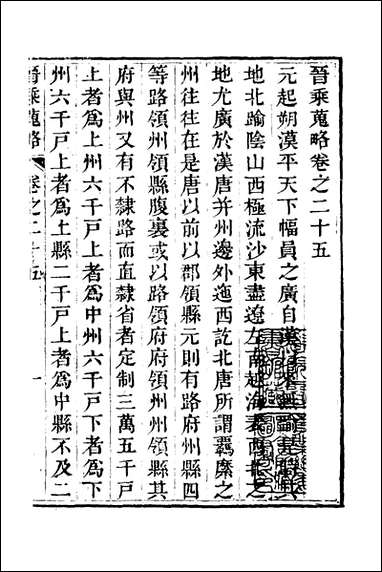 晉乘蒐略卷之二十五
元起朔漠平天下幅員之廣自漢以來
地北踰陰山西極流沙東盡遼左南越海表西北之
地尤廣於漢唐并州邊外迤西訖北唐所謂羈縻之
州往往在是唐以前以郡領縣元則有路府州縣四
等路領州領縣腹裏或以路領府府領州州領縣其
府與州又有不隸路而直隸省者定制三萬五千戶
上者爲上州六千戶上者爲中州六千戶下者爲下
州六千戶上者爲上縣二千戶上者爲中縣不及二
晉乘蒐略 卷之二十五 一